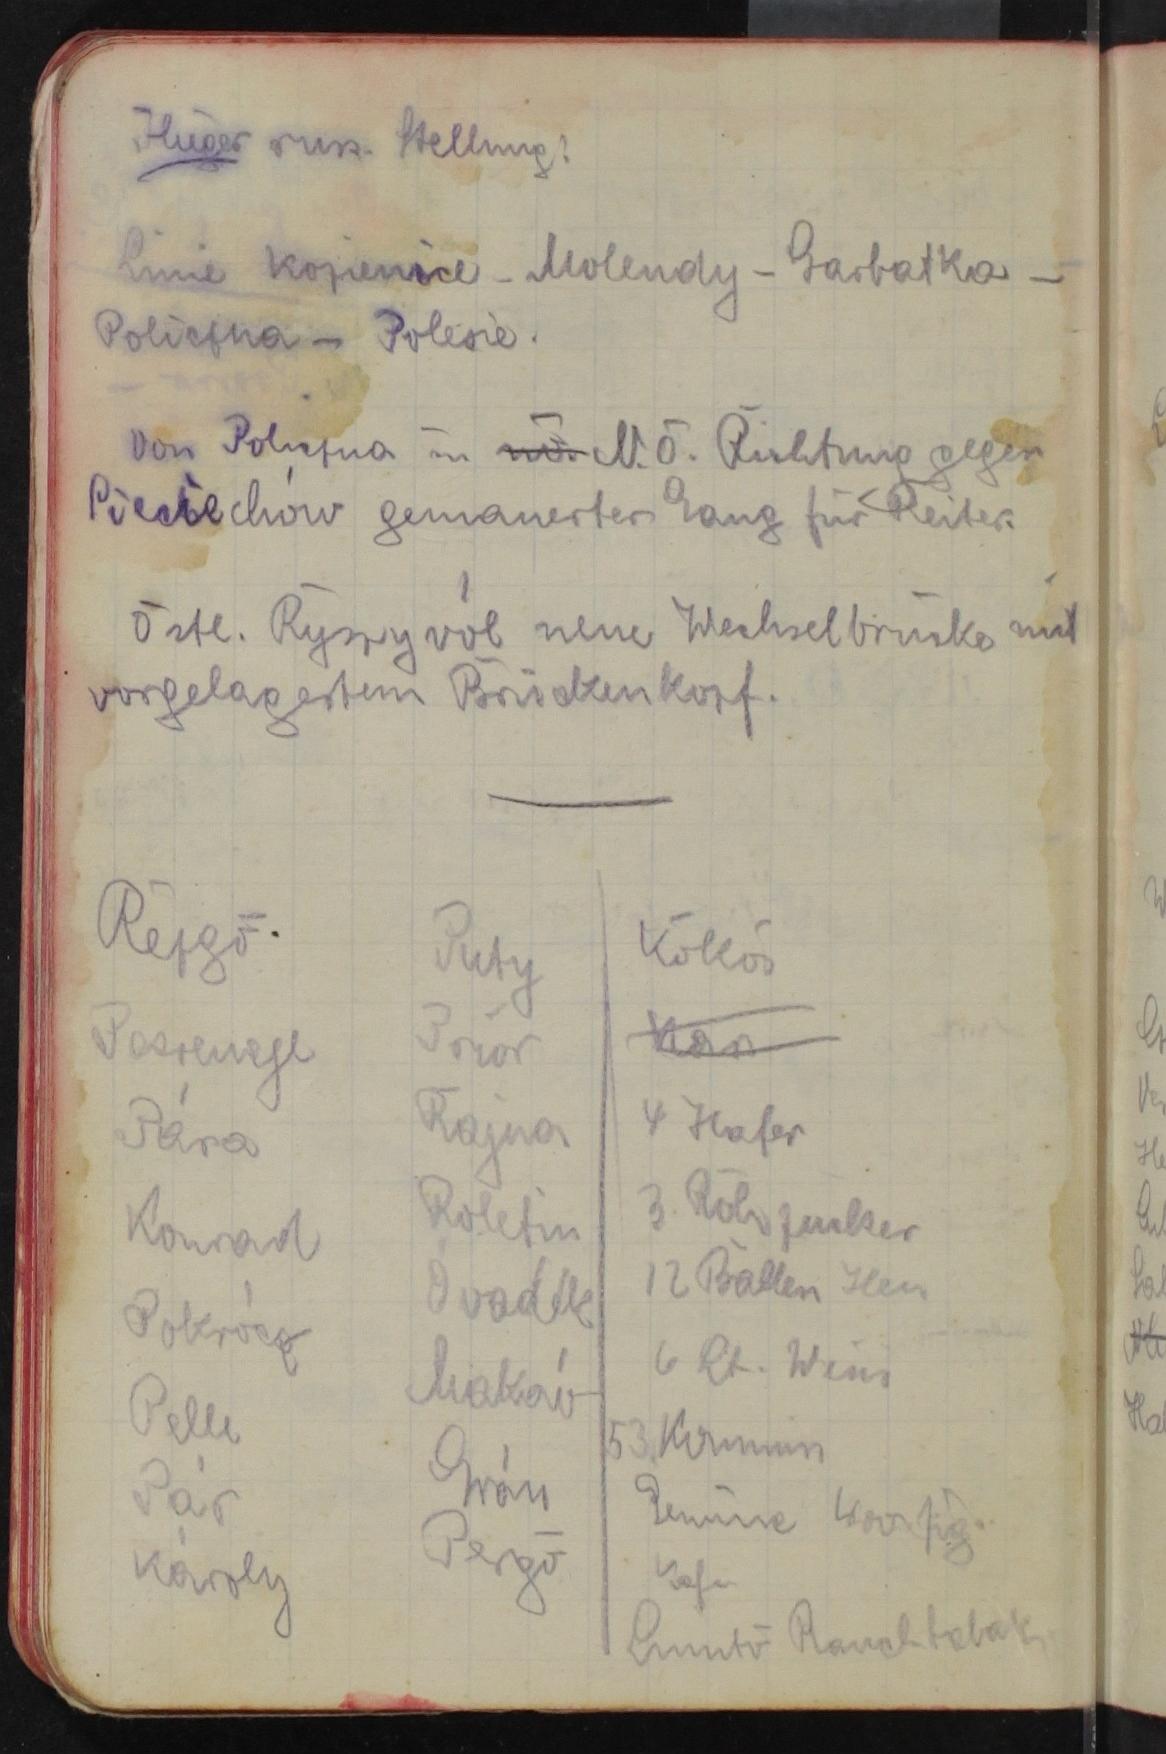 Flieger russ. Stellung:
Linie Kozienice - Molendy - Garbatka -
Policzna - Polesie.
Von Policzna in N. Ö. Richtung gegen
Pieciechów gemauerter Gang für Reiter.
Östl. Ryszyvól neue Wechselbrücke mit
vorgelagertem Brückenkopf.
Rézgö.
Pára
Konrad
Pokrócz
Pelle
Pár
Károly
Puty
Prior
Rajna
Roletin
Óvadék
Makáv
Grán
Pergö
Kökös
4 Hafer
3 Rohrzucker
12 Ballen Heu
6 Lt. Wein
53 Kommiss
Gemüse
Rauchtabak